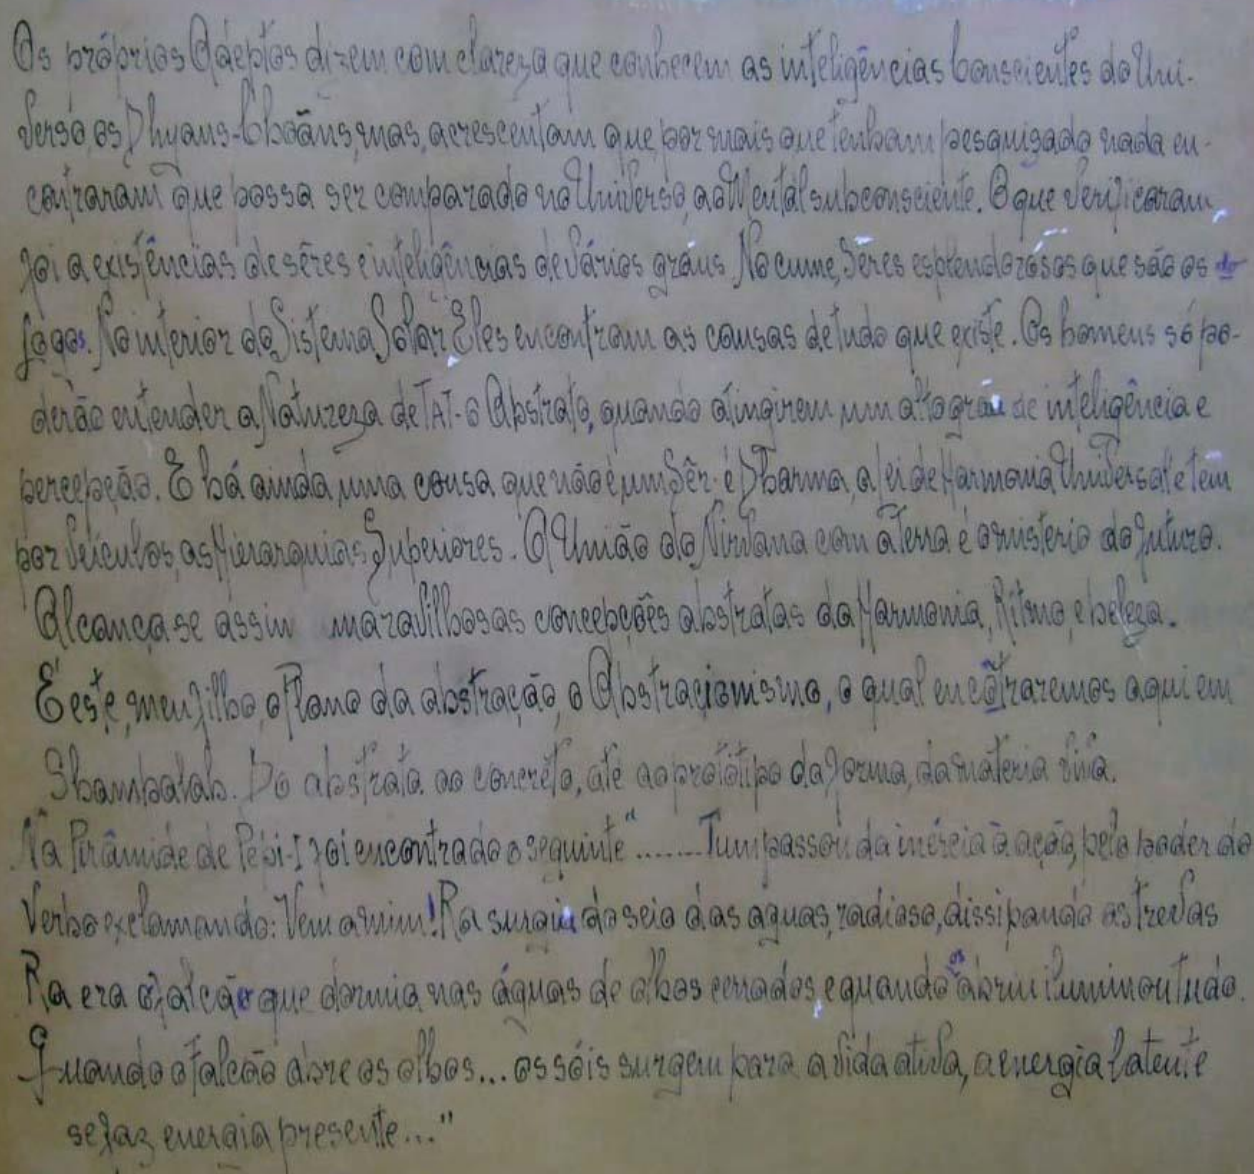 Os próprios Adéptos dizem com clareza que conhecem as inteligências Conscientes do Uni-
verso, os Dhyans-Choãns, mas, acrescentam que, por mais que tenham pesquisado nada en-
contraram que possa ser comparado no Universo, ao Mental subconsciente. O que verificaram
foi a existências de sêres e inteligências de Vários gráus. No cume, Sêres esplendorósos que são os do
Logos. No interior do Sistema Solar Eles encontram as causas de tudo que existe. Os homens só po-
derão entender a Natureza de TAT-o Abstrato, quando atingirem, um alto gráu de inteligência e
percepção. E há ainda, uma cousa que não é um Sêr-é Dharma, a lei de Harmonia Universal e têm
por Veículos, as Hierarquias Superiores. A União do Nirvana com a Terra é o mistério do futuro.
Alcança se assim maravilhosas concepções abstratas da Harmonia, Rítmo, e beleza.
É este, meu filho, o Plano da abstração, o Abstracionismo, o qual encôtraremos aqui em
Shamballah. Do abstrato ao concréto, até ao protótipo da forma, da matéria viva.
Na Pirâmide de Pépi-I foi encontrado o seguinte "........Tum passou da inércia à ação, pelo poder do
Verbo exclamando: Vem a mim! Ra surgiu do seio das aguas, radioso, dissipando as trevas
Ra era o falcão que dormia nas águas de olhos cerrados, e quando os abriu iluminou tudo.
Quando o Falcão abre os olhos... os sóis surgem para a vida ativa, a energia latente
se faz energia presente..."